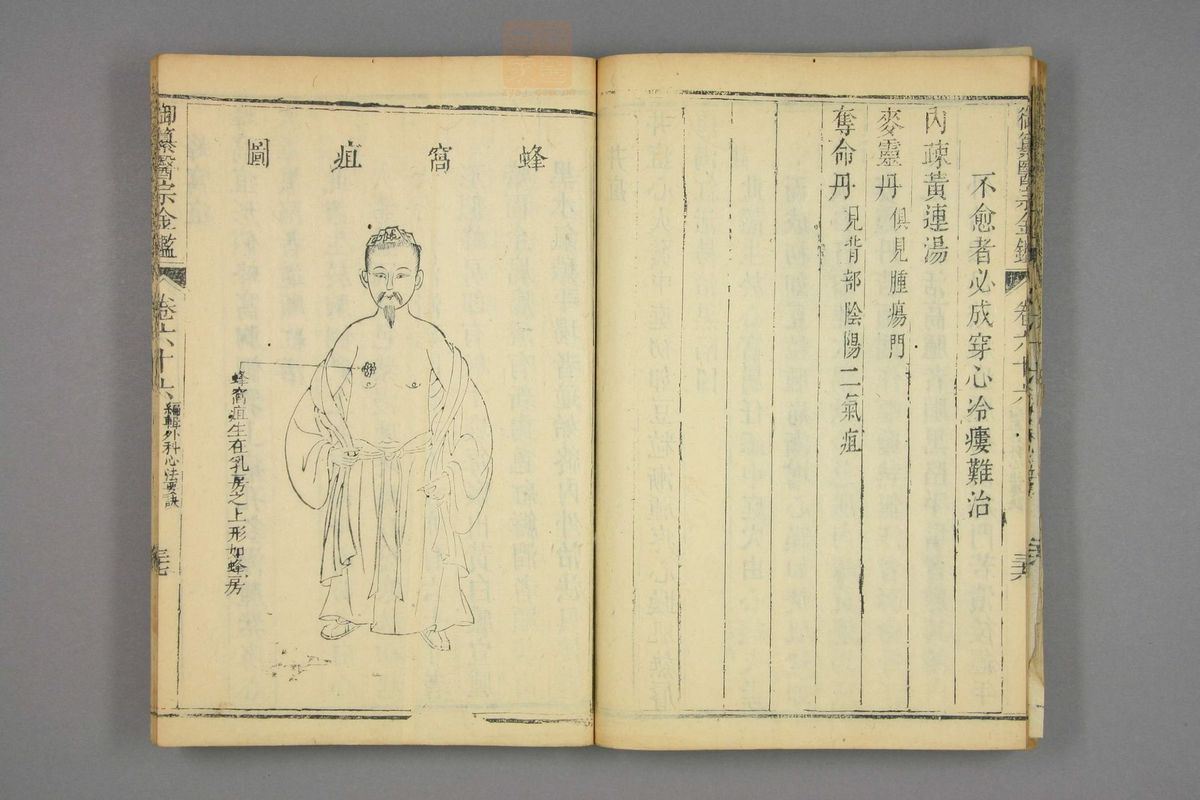 不愈者必成穿心冷瘻難治
內疎黃連湯
麥靈丹 俱見腫瘍門
奪命丹 見背部陰陽二氣疽
御纂醫宗金鑑
卷六十六
三六
蜂窩疽圖
蜂窩疽生在乳房之上形如蜂房
御纂醫宗金鑑
卷六十六
編輯外科心法要訣
三七